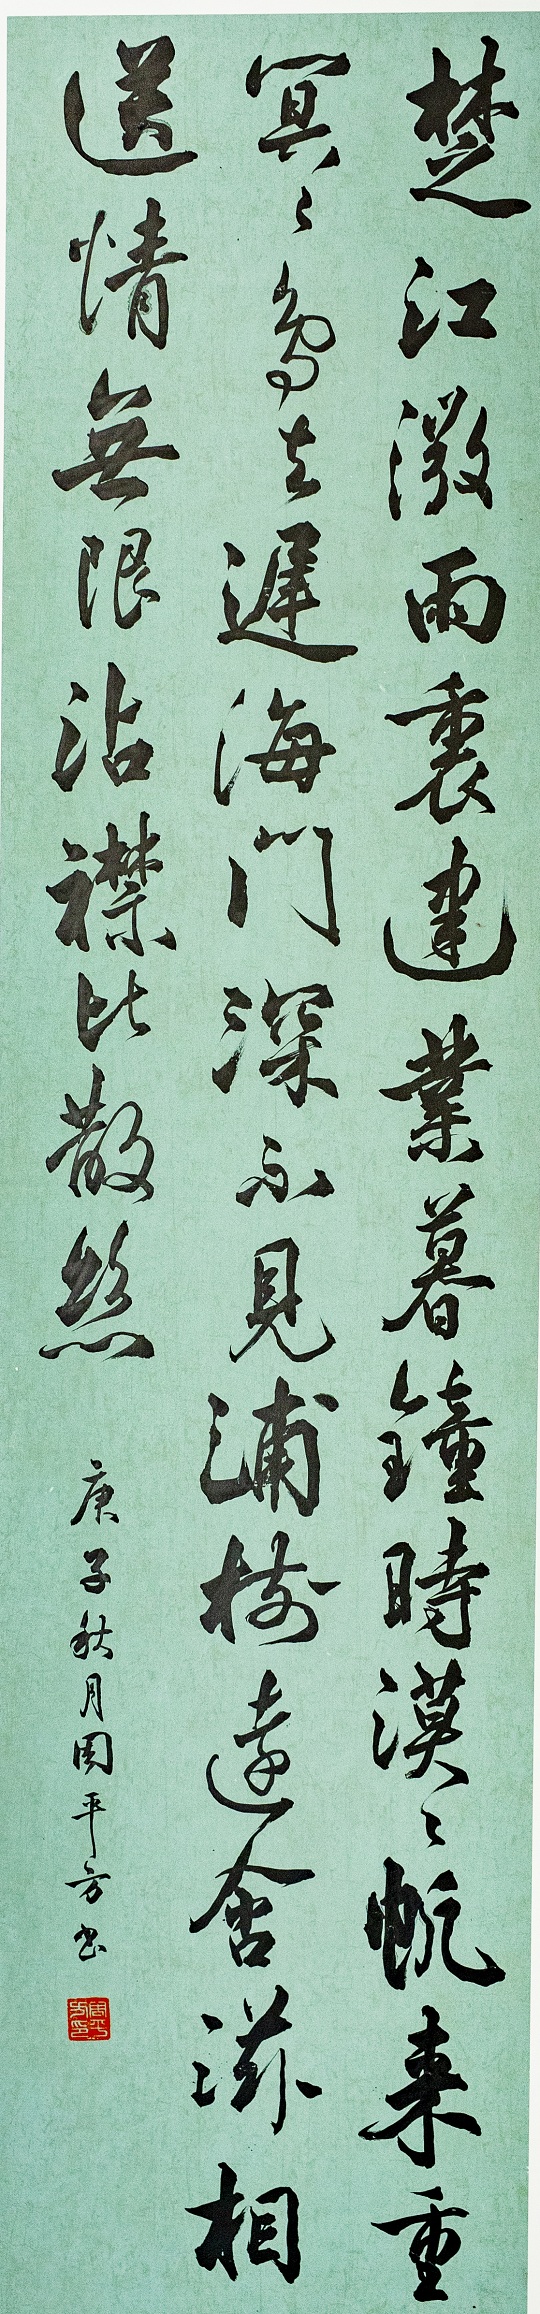 楚江溦雨裏建業暮鐘時漠々帆来重
冥々鳥去遲海門深不見浦樹遠含滋相
送情無限沾襟比散絲
庚子秋月周平方书
周平方印